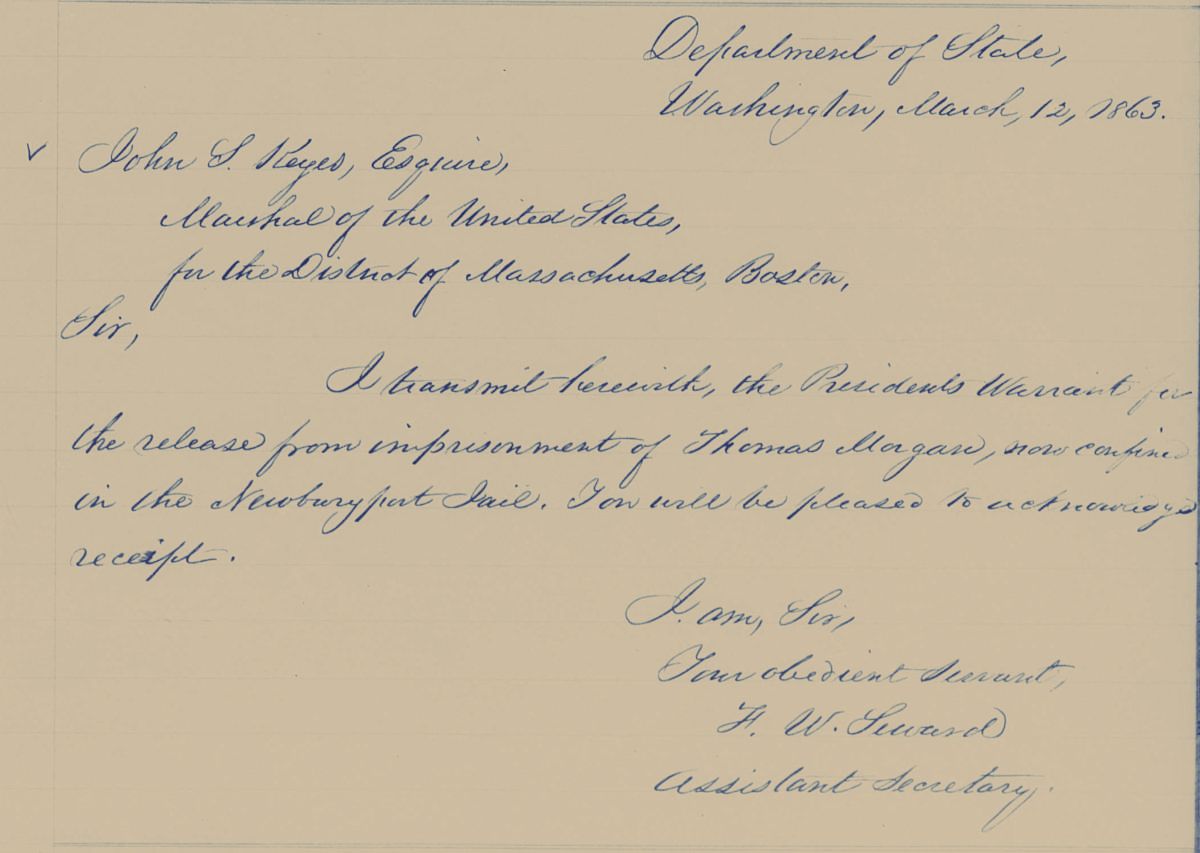 Department of State,
Washington, March, 12, 1863.
John S. Keyes, Esquire,
Marshal of the United States,
for the District of Massachusetts, Boston,
Sir,
I transmit herewith, the Presidents Warrant for
the release from imprisonment of Thomas Morgan, now confined
in the Newburyport Jail. You will be pleased to acknowledge
receipt.
I am, Sir,
Your obedient servant,
F. W. Seward
Assistant Secretary.